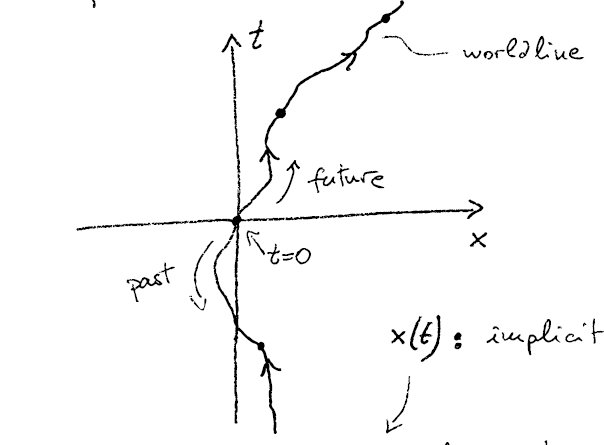 t
worldline
future
x
t=0
past
x(t) : implicit